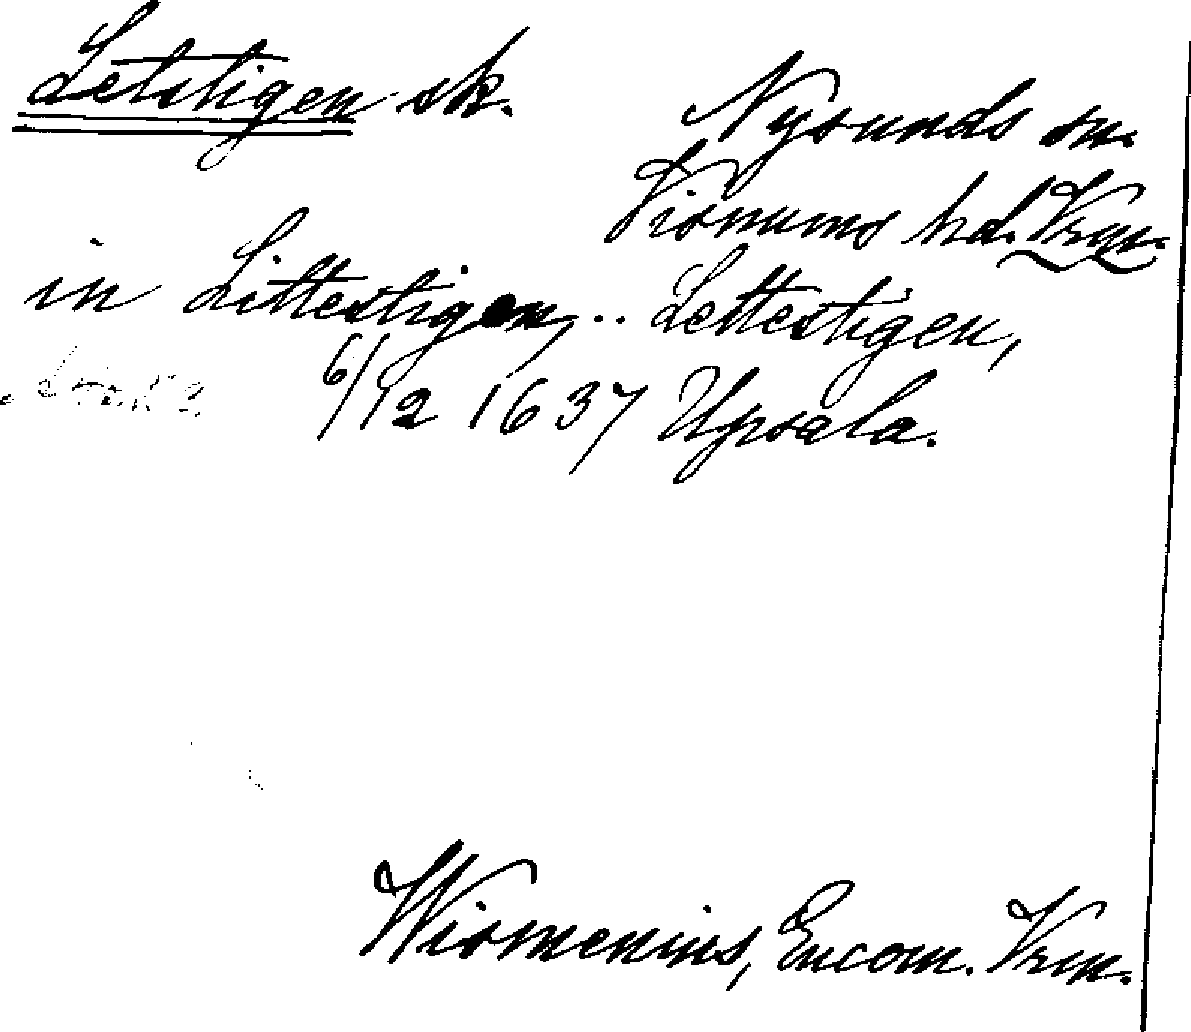 Letstigen sk.
Nysunds sn.
Visnums hd. Vrm.
in Littestigen, .. Lettestigen,
6/12 1637 Upsala.
Wismenius, Encom. Vrm.